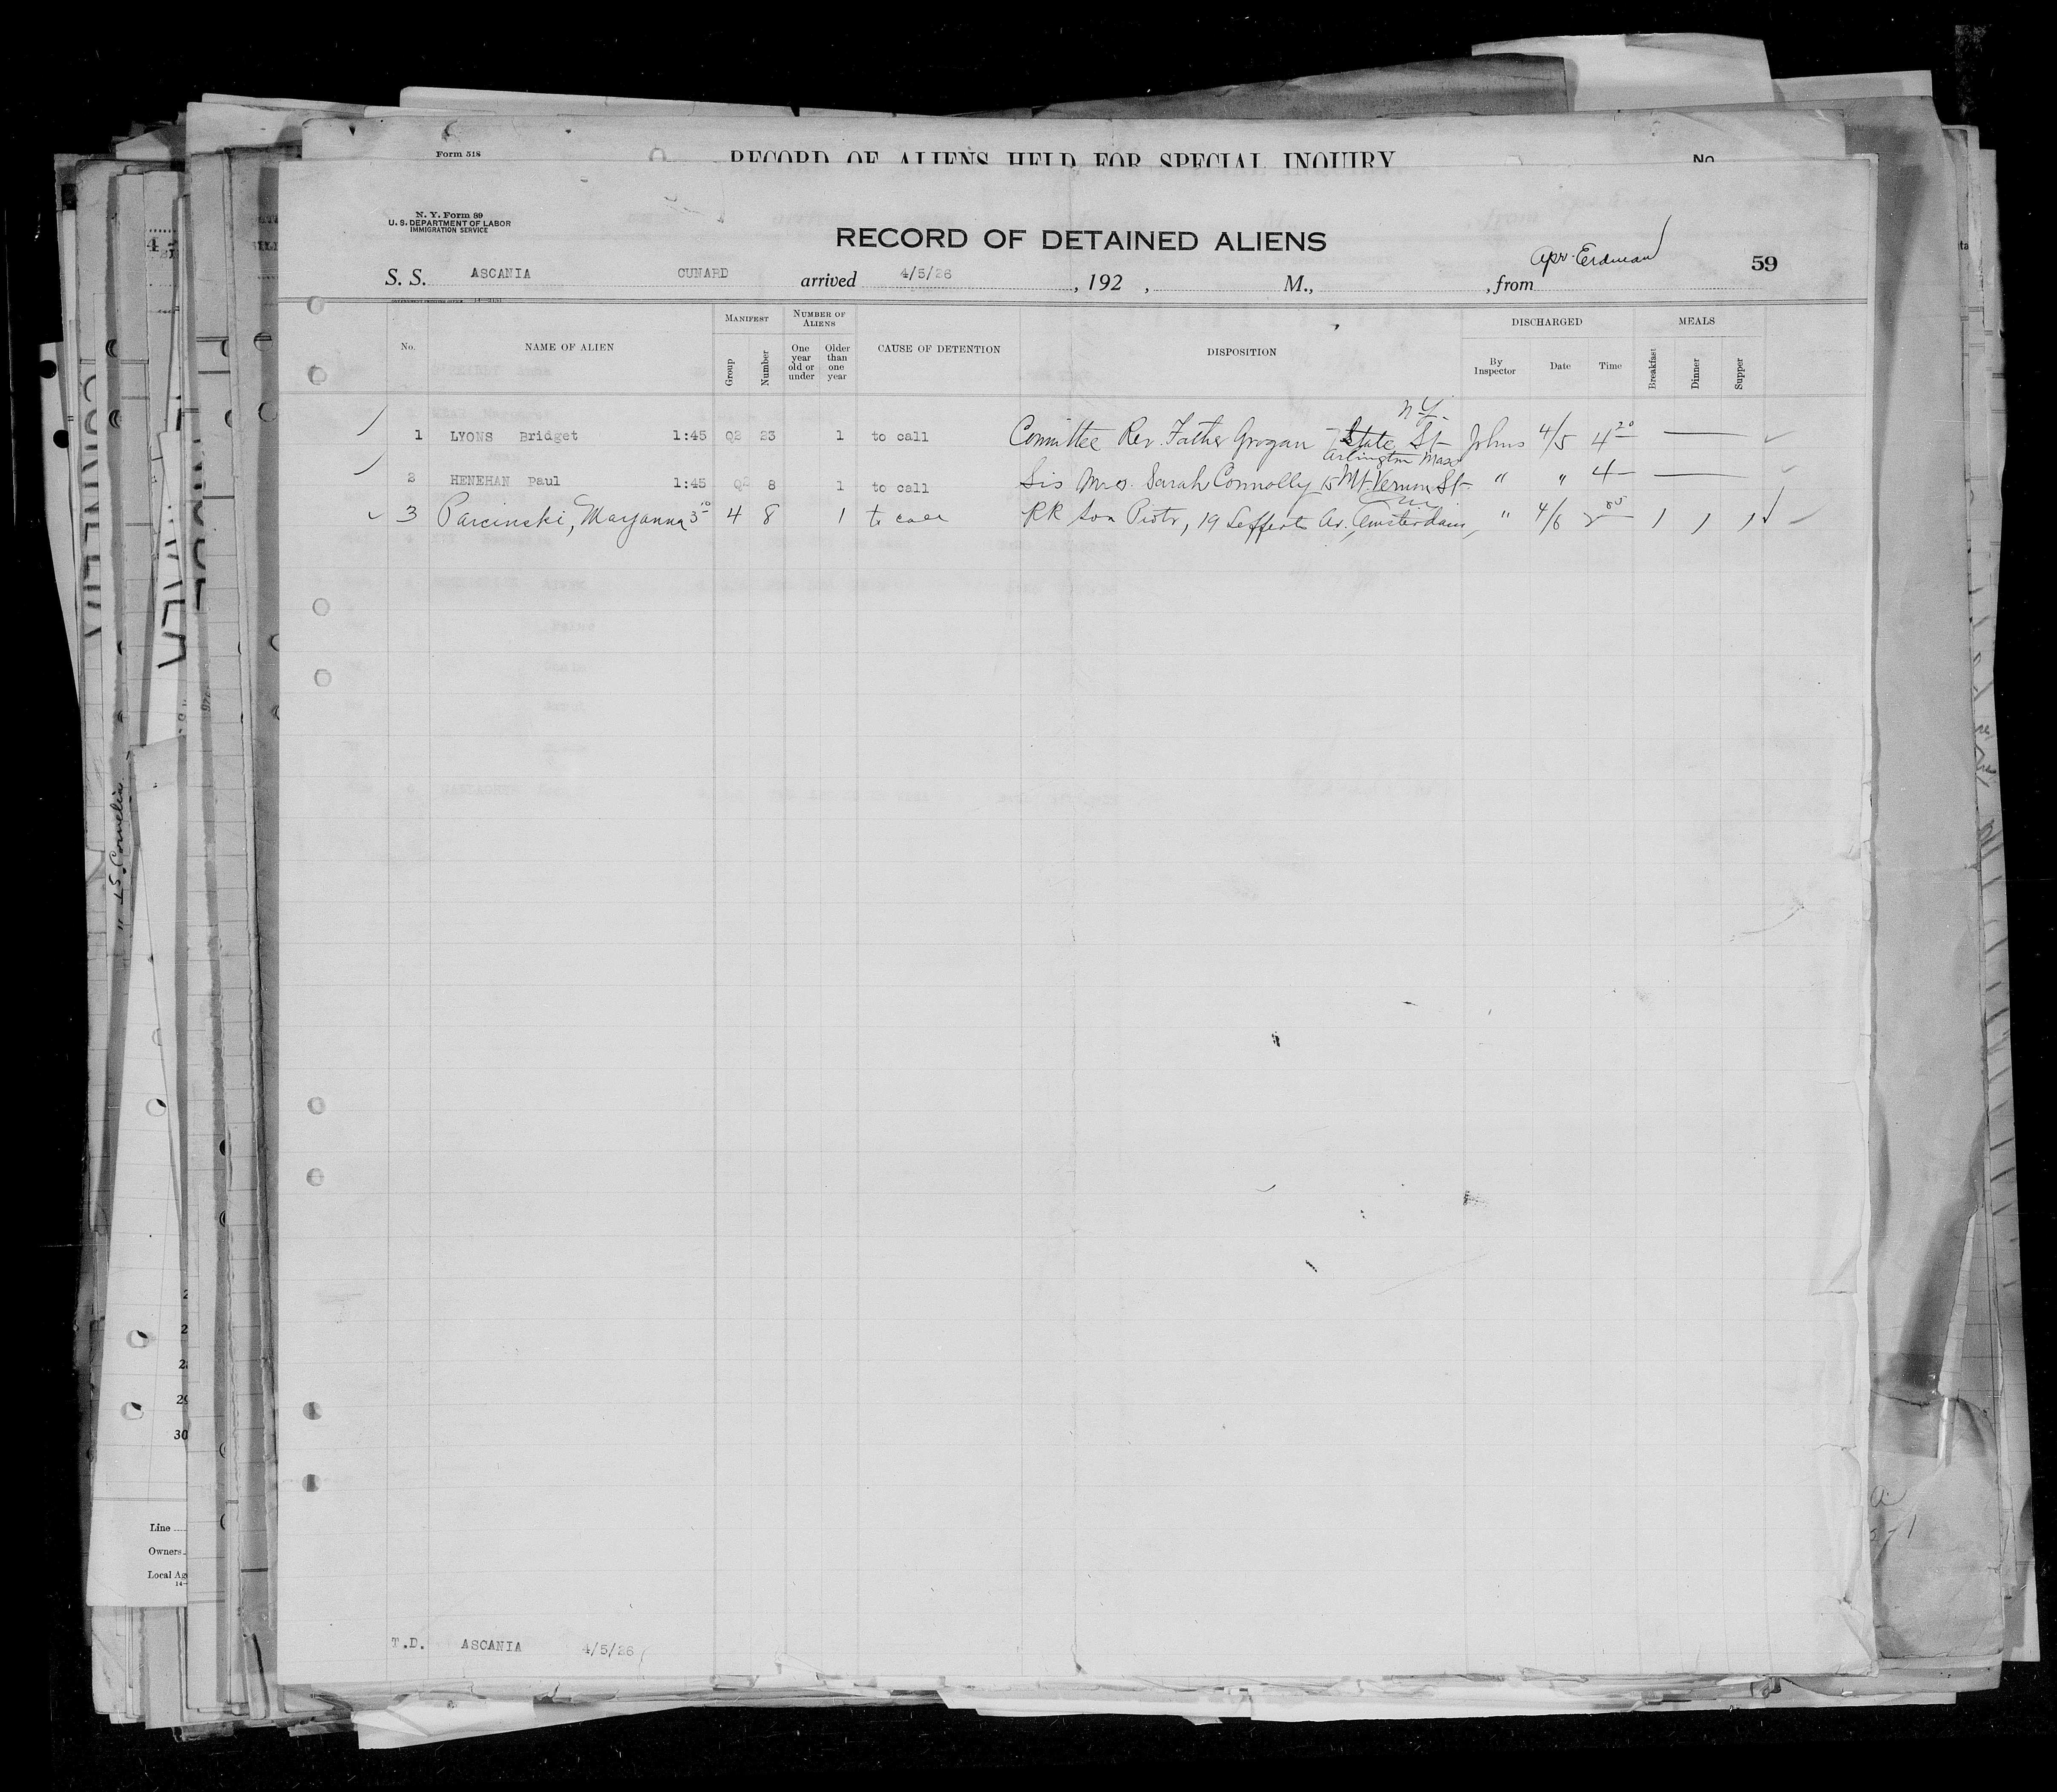 Form 518
RECORD OF ALIENS HELD FOR SPECIAL INQUIRY
No.
N. Y. Form 89
U. S. DEPARTMENT OF LABOR
IMMIGRATION SERVICE
RECORD OF DETAINED ALIENS
Apr. Erdman
59
S. S. ASCANIA CUNARD arrived 4/5/26, 192 , M., , from
No. NAME OF ALIEN MANIFEST Group Number NUMBER OF ALIENS One year old or under Older than one year CAUSE OF DETENTION DISPOSITION DISCHARGED By Inspector Date Time MEALS Breakfast Dinner Supper
N.Y.
1 LYONS Bridget 1:45 Q2 23 1 to call Committee Rev. Father Grogan - 7 State St Johns 4/5 4 20
Arlington Mass
2 HENEHAN Paul 1:45 Q2 8 1 to call Sis Mrs. Sarah Connolly 15 Mt. Vernon St. " " 4
3 Parcinski, Maryanna 3 10 4 8 1 to call RR son Piotr, 19 Lefferts Av., Amsterdam, " 4/6 1 1 1
T.D. ASCANIA 4/5/26
CORNELIA
" LS. Cornelia
2
29
30
Line
Owners
Local Ag